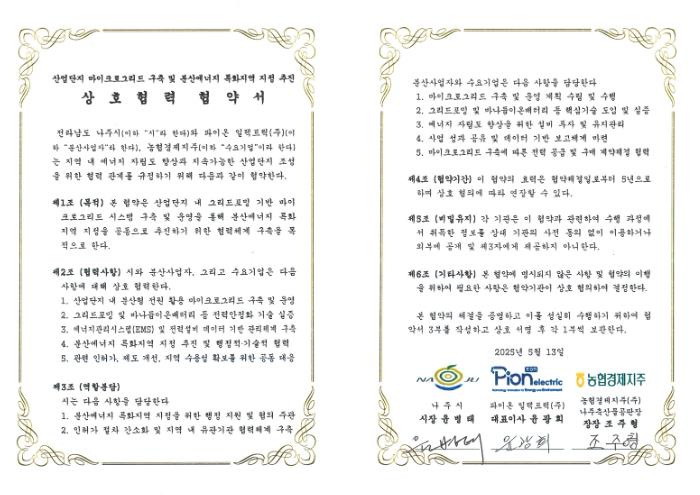 산업단지 마이크로그리드 구축 및 분산에너지 특화지역 지정 추진
상 호 협 력 협 약 서
전라남도 나주시(이하 "시"라 한다)와 파이온 일렉트릭(주)(이
하 "분산사업자"라 한다), 농협경제지주(이하 "수요기업"이라 한다)
는 지역 내 에너지 자립도 향상과 지속가능한 산업단지 조성
을 위한 협력 관계를 규정하기 위해 다음과 같이 협약한다.
제1조 (목적) 본 협약은 산업단지 내 그리드포밍 기반 마이
크로그리드 시스템 구축 및 운영을 통해 분산에너지 특화
지역 지정을 공동으로 추진하기 위한 협력체계 구축을 목
적으로 한다.
제2조 (협력사항) 시와 분산사업자, 그리고 수요기업은 다음
사항에 대해 상호 협력한다.
1. 산업단지 내 분산형 전원 활용 마이크로그리드 구축 및 운영
2. 그리드포밍 및 바나듐이온배터리 등 전력안정화 기술 실증
3. 에너지관리시스템(EMS) 및 전력설비 데이터 기반 관리체계 구축
4. 분산에너지 특화지역 지정 추진 및 행정적·기술적 협력
5. 관련 인허가, 제도 개선, 지역 수용성 확보를 위한 공동 대응
제3조 (역할분담)
시는 다음 사항을 담당한다
1. 분산에너지 특화지역 지정을 위한 행정 지원 및 협의 주관
2. 인허가 절차 간소화 및 지역 내 유관기관 협력체계 구축
분산사업자와 수요기업은 다음 사항을 담당한다
1. 마이크로그리드 구축 및 운영 계획 수립 및 수행
2. 그리드포밍 및 바나듐이온배터리 등 핵심기술 도입 및 실증
3. 에너지 자립도 향상을 위한 설비 투자 및 유지관리
4. 사업 성과 공유 및 데이터 기반 보고체계 마련
5. 마이크로그리드 구축에 따른 전력 공급 및 구매 계약체결 협력
제4조 (협약기간) 이 협약의 효력은 협약체결일로부터 5년으로
하며 상호 협의에 따라 연장할 수 있다.
제5조 (비밀유지) 각 기관은 이 협약과 관련하여 수행 과정에
서 취득한 정보를 상대 기관의 사전 동의 없이 이용하거나
외부에 공개 및 제3자에게 제공하지 아니한다.
제6조 (기타사항) 본 협약에 명시되지 않은 사항 및 협약의 이행
을 위하여 필요한 사항은 협약기관이 상호 협의하여 결정한다.
본 협약의 체결을 증명하고 이를 성실히 수행하기 위하여 협
약서 3부를 작성하고 상호 서명 후 각 1부씩 보관한다.
2025년 5월 13일
NAJU
Pion electric
농협경제지주
나 주 시
시장 윤 병 태
파이온 일렉트릭(주)
대표이사 윤 광 희
농협경제지주(주)
나주축산물공판장
장장 조 주 형
윤병태
윤광희
조주형